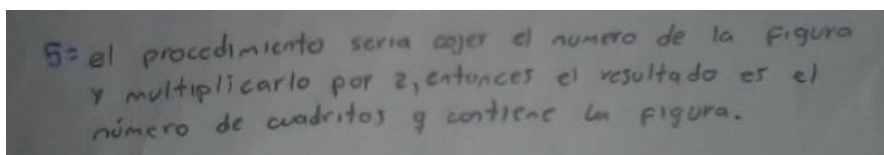 5= el procedimiento seria cojer el numero de la figura
y multiplicarlo por 2, entonces el resultado es el
número de cuadritos q contiene la figura.